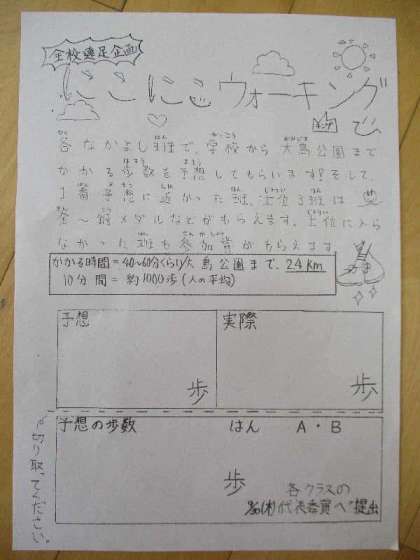 全校遠足企画
にこにこウォーキング
各なかよし班で、学校から大鳥公園まで
かかる歩数を予想してもらいます。そして、
1番予想に近かった班、上位3班は賞
金〜銅メダルなどがもらえます。上位に入ら
なかった班も参加賞がもらえます。
かかる時間=40〜60分くらい/大鳥公園まで、2.4km
10分間=約1000歩(人の平均)
予想
実際
歩
歩
予想の歩数 はん A・B
歩
各クラスの
(木)代表委員へ提出
切り取ってください。